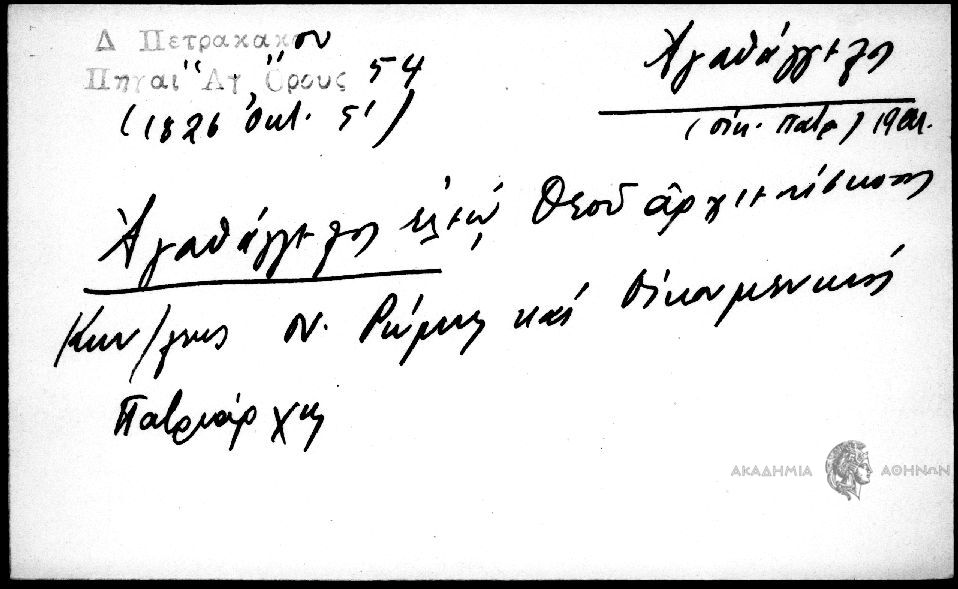 Δ Πετρακακου
Πηγαί Ἁγ Ὄρους 54
(1826 Ὀκτ. 5')
Ἀγαθάγγελος
(οἰκ. Πατρ) 19αι.
Ἀγαθάγγελος ἐλέῳ Θεοῦ ἀρχιεπίσκοπος
Κων/λεως ν. Ρώμης καί Οἰκουμενικός
Πατριάρχης
ΑΚΑΔΗΜΙΑ ΑΘΗΝΩΝ